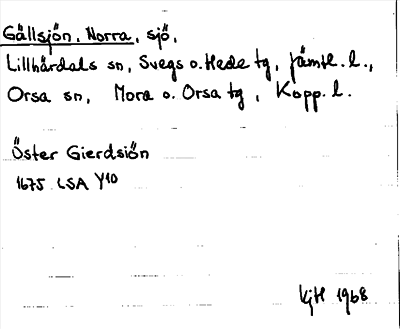 Gällsjön, Norra, sjö,
Lillhärdals sn, Svegs o. Hede tg, Jämtl. l.,
Orsa sn, Mora o. Orsa tg, Kopp. l.
Öster Gierdsiön
1675 LSA Y10
KjH 1968